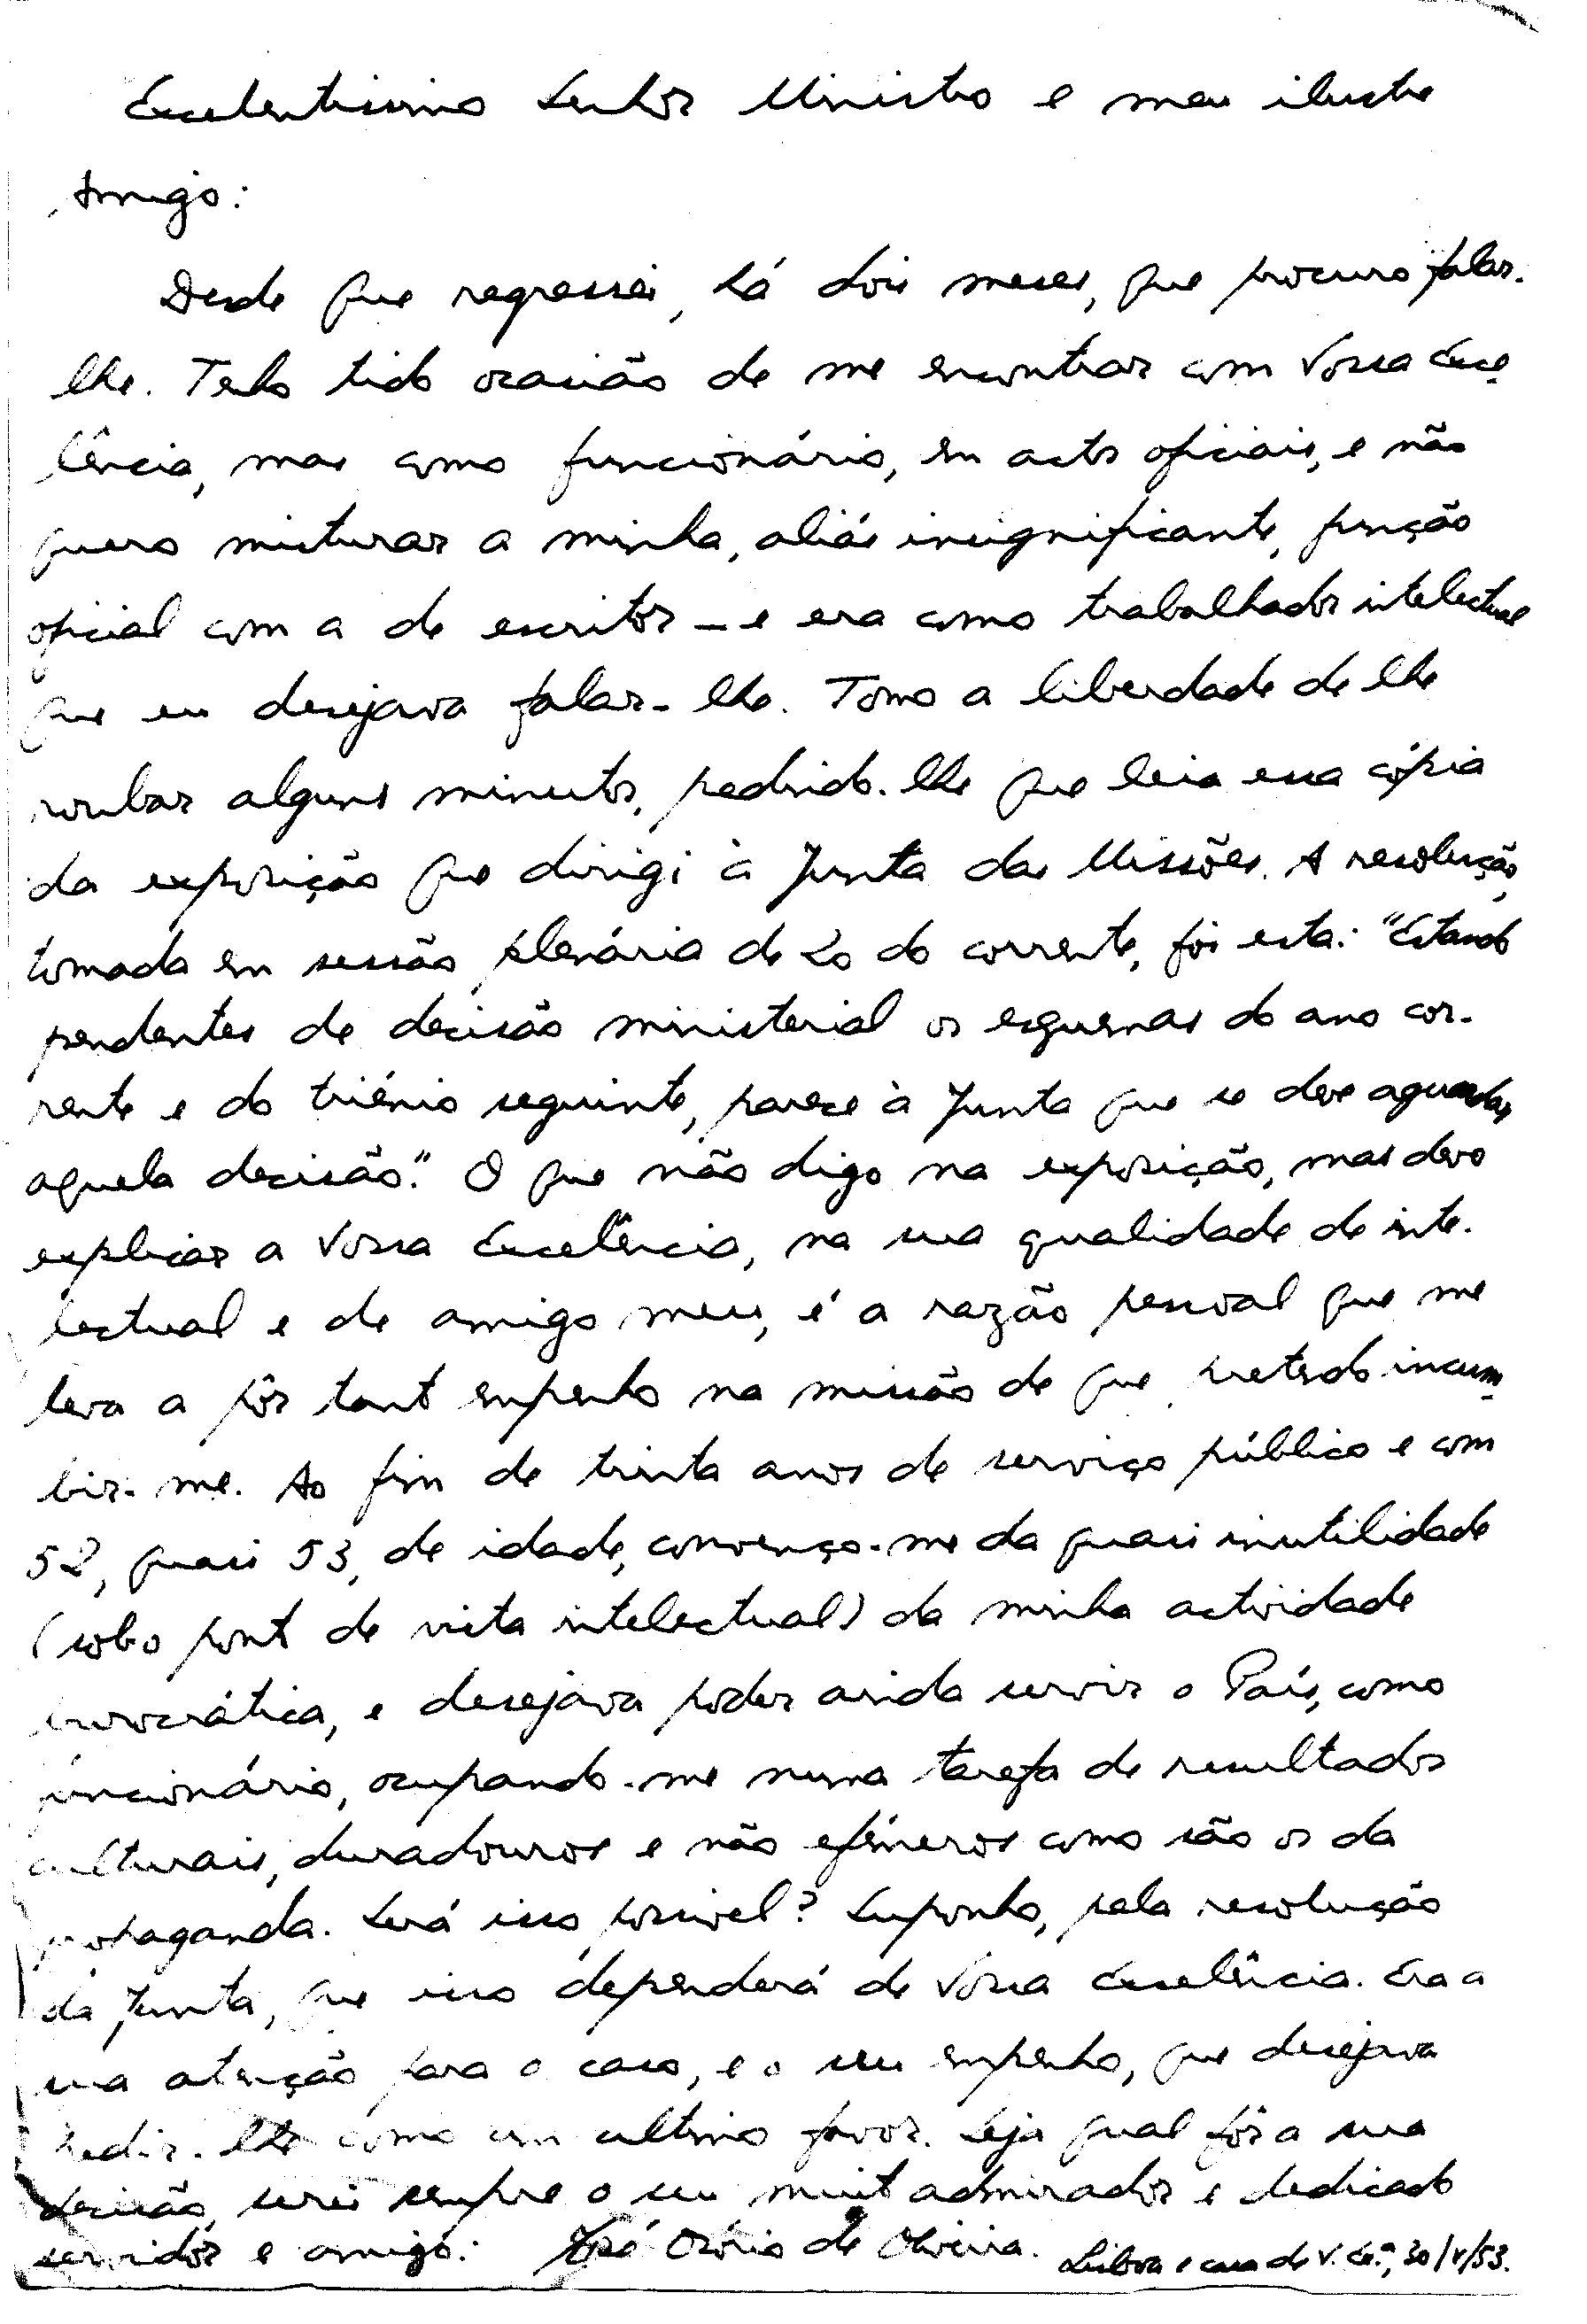 Excelentissimo Senhor Ministro e meu ilustre
Amigo:
Desde que regressei, há dois meses, que procuro falar-
lhe. Tenho tido ocasião de me encontrar com Vossa Exce-
lência, mas como funcionário, em actos oficiais, e não
quero misturar a minha, aliás insignificante, função
oficial com a de escritor - e era como trabalhador intelectual
que eu desejava falar-lhe. Tomo a liberdade de lhe
roubar alguns minutos, pedindo-lhe que leia essa cópia
da exposição que dirigi à Junta das Missões. A resolução,
tomada em sessão plenária de 20 do corrente, foi esta: "Estando
pendentes de decisão ministerial os esquemas do ano cor-
rente e do triénio seguinte, parece à Junta que se deve aguardar
aquela decisão." O que não digo na exposição, mas devo
explicar a Vossa Excelência, na sua qualidade de inte-
lectual e de amigo meu, é a razão pessoal que me
leva a pôr tanto empenho na missão de que pretendo incum-
bir-me. Ao fim de trinta anos de serviço público e com
52, quasi 53, de idade, convenço-me da quasi inutilidade
(sob o ponto de vista intelectual) da minha actividade
burocrática, e desejava poder ainda servir o País, como
funcionário, ocupando-me numa tarefa de resultados
culturais, duradouros e não efémeros como são os da
propaganda. Será isso possivel? Suponho, pela resolução
da Junta, que isso dependerá de Vossa Excelência. Era a
sua atenção para o caso, e o seu empenho, que desejava
pedir-lhe como um ultimo favor. Seja qual fôr a sua
decisão, serei sempre o seu muito admirador e dedicado
servidor e amigo: José Osório de Oliveira. Lisboa e casa de V. Ex.ª, 30/V/53.